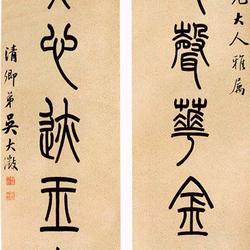 兄大人雅屬
聲華金
心迹玉
清卿弟吳大澂